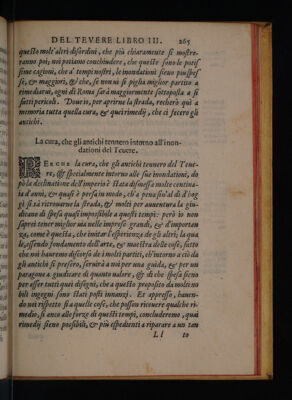 DEL TEVERE LIBRO III. 265
questo molt'altri disordini, che più chiaramente si mostre-
ranno poi; noi potiamo conchiudere, che queste sono le potis
sime cagioni, che a' tempi nostri, le inondationi sieno piu spes
se, & maggiori, & che, se non ui si piglia miglior partito a
rimediarui, ogni dì Roma sarà maggiormente sottoposta a sì
fatti pericoli. Doue io, per aprirne la strada, recherò quì a
memoria tutta quella cura, & quei rimedij, che ci fecero gli
antichi.
La cura, che gli antichi tennero intorno all'inon-
dationi del Teuere.
PERCHE la cura, che gli antichi tennero del Teue-
re, & spetialmente intorno alle sue inondationi, do
pò la declinatione dell'imperio è stata dismessa molte centina
ia d'anni, & quasi è persa in modo, ch'a pena sia chi di lun
gi si sà ritrouarne la strada, & molti per auuentura la giu-
dicano di spesa quasi impossibile a questi tempi: però io non
saprei tener miglior uia nelle imprese grandi, & d'importan
za, come è questa, che imitar l'esperienza de gli altri; la qua
le, essendo fondamento dell'arte, & maestra delle cose, fatto
che noi hauremo discorso de i molti partiti, ch'intorno a ciò da
gli antichi si presero, seruirà a noi per una guida, & per un
paragone a giudicare di quanto ualore, & di che spesa sieno
per esser tutti quei disegni, che a questo proposito da molti no
bili ingegni sono stati posti innanzi. Et appresso, hauen-
do noi rispetto sì a quelle cose, che posson riceuere qualche ri-
medio, sì anco alle forze di questi tempi, concluderemo, quai
rimedij sieno possibili, & più espedienti a riparare a un tan
Ll to